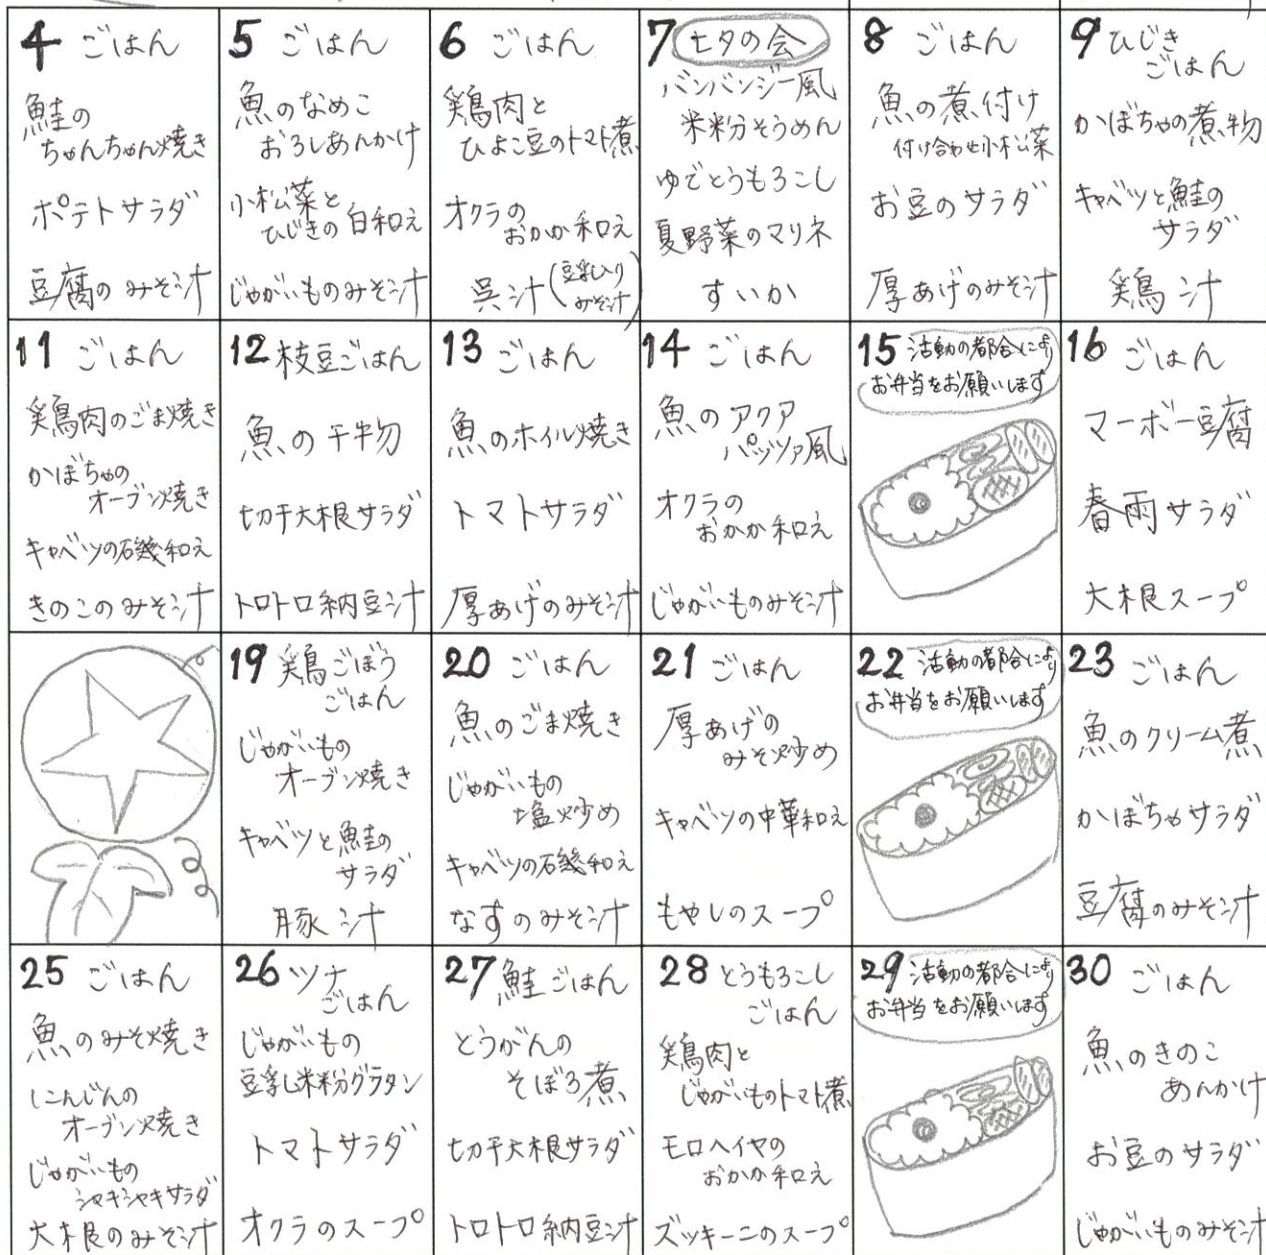 4 ごはん
鮭の
ちゃんちゃん焼き
ポテトサラダ
豆腐の みそ汁
5 ごはん
魚のなめこ
おろしあんかけ
小松菜と
ひじきの白和え
じゃがいものみそ汁
6 ごはん
鶏肉と
ひよこ豆のトマト煮
オクラの
おかか和え
呉汁(豆乳入り
みそ汁)
7 七夕の会
バンバンジー風
米粉そうめん
ゆでとうもろこし
夏野菜のマリネ
すいか
8 ごはん
魚の煮付け
付け合わせ小松菜
お豆のサラダ
厚あげのみそ汁
9 ひじき
ごはん
かぼちゃの煮物
キャベツと鮭の
サラダ
鶏汁
11 ごはん
鶏肉のごま焼き
かぼちゃの
オーブン焼き
キャベツの磯和え
きのこのみそ汁
12 枝豆ごはん
魚の干物
切干大根サラダ
トロトロ納豆汁
13 ごはん
魚のホイル焼き
トマトサラダ
厚あげのみそ汁
14 ごはん
魚のアクア
パッツァ風
オクラの
おかか和え
じゃがいものみそ汁
15 活動の都合により
お弁当をお願いします
16 ごはん
マーボー豆腐
春雨サラダ
大根スープ
19 鶏ごぼう
ごはん
じゃがいもの
オーブン焼き
キャベツと鮭の
サラダ
豚汁
20 ごはん
魚のごま焼き
じゃがいもの
塩炒め
キャベツの磯和え
なすのみそ汁
21 ごはん
厚あげの
みそ炒め
キャベツの中華和え
もやしのスープ
22 活動の都合により
お弁当をお願いします
23 ごはん
魚のクリーム煮
かぼちゃサラダ
豆腐のみそ汁
25 ごはん
魚のみそ焼き
にんじんの
オーブン焼き
じゃがいもの
シャキシャキサラダ
大根のみそ汁
26 ツナ
ごはん
じゃがいもの
豆乳米粉グラタン
トマトサラダ
オクラのスープ
27 鮭ごはん
とうがんの
そぼろ煮
切干大根サラダ
トロトロ納豆汁
28 とうもろこし
ごはん
鶏肉と
じゃがいものトマト煮
モロヘイヤの
おかか和え
ズッキーニのスープ
29 活動の都合により
お弁当をお願いします
30 ごはん
魚のきのこ
あんかけ
お豆のサラダ
じゃがいものみそ汁